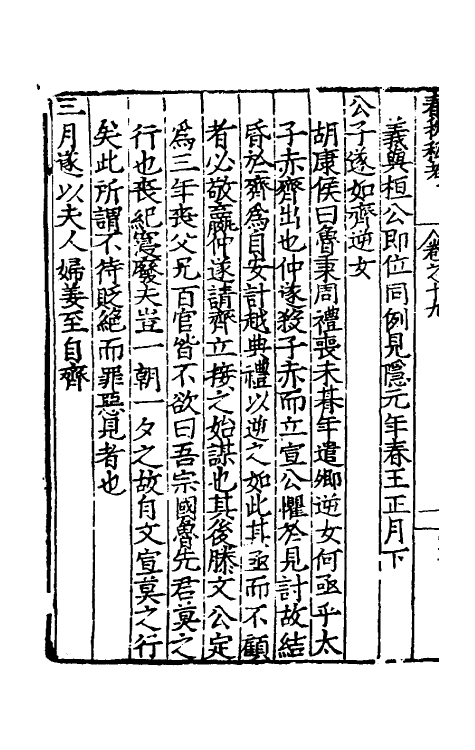 義與桓公即位同例見隱元年春王正月下
公子遂如齊逆女
胡康侯曰魯秉周禮喪未朞年遣卿逆女何亟乎太
子赤齊出也仲遂殺子赤而立宣公懼於見討故結
昏於齊爲自安計越典禮以逆之如此其亟而不顧
者必敬嬴仲遂請齊立接之始謀也其後滕文公定
爲三年喪父兄百官皆不欲曰吾宗國魯先君莫之
行也喪紀寖廢夫豈一朝一夕之故自文宣莫之行
矣此所謂不待貶絕而罪惡見者也
三月遂以夫人婦姜至自齊